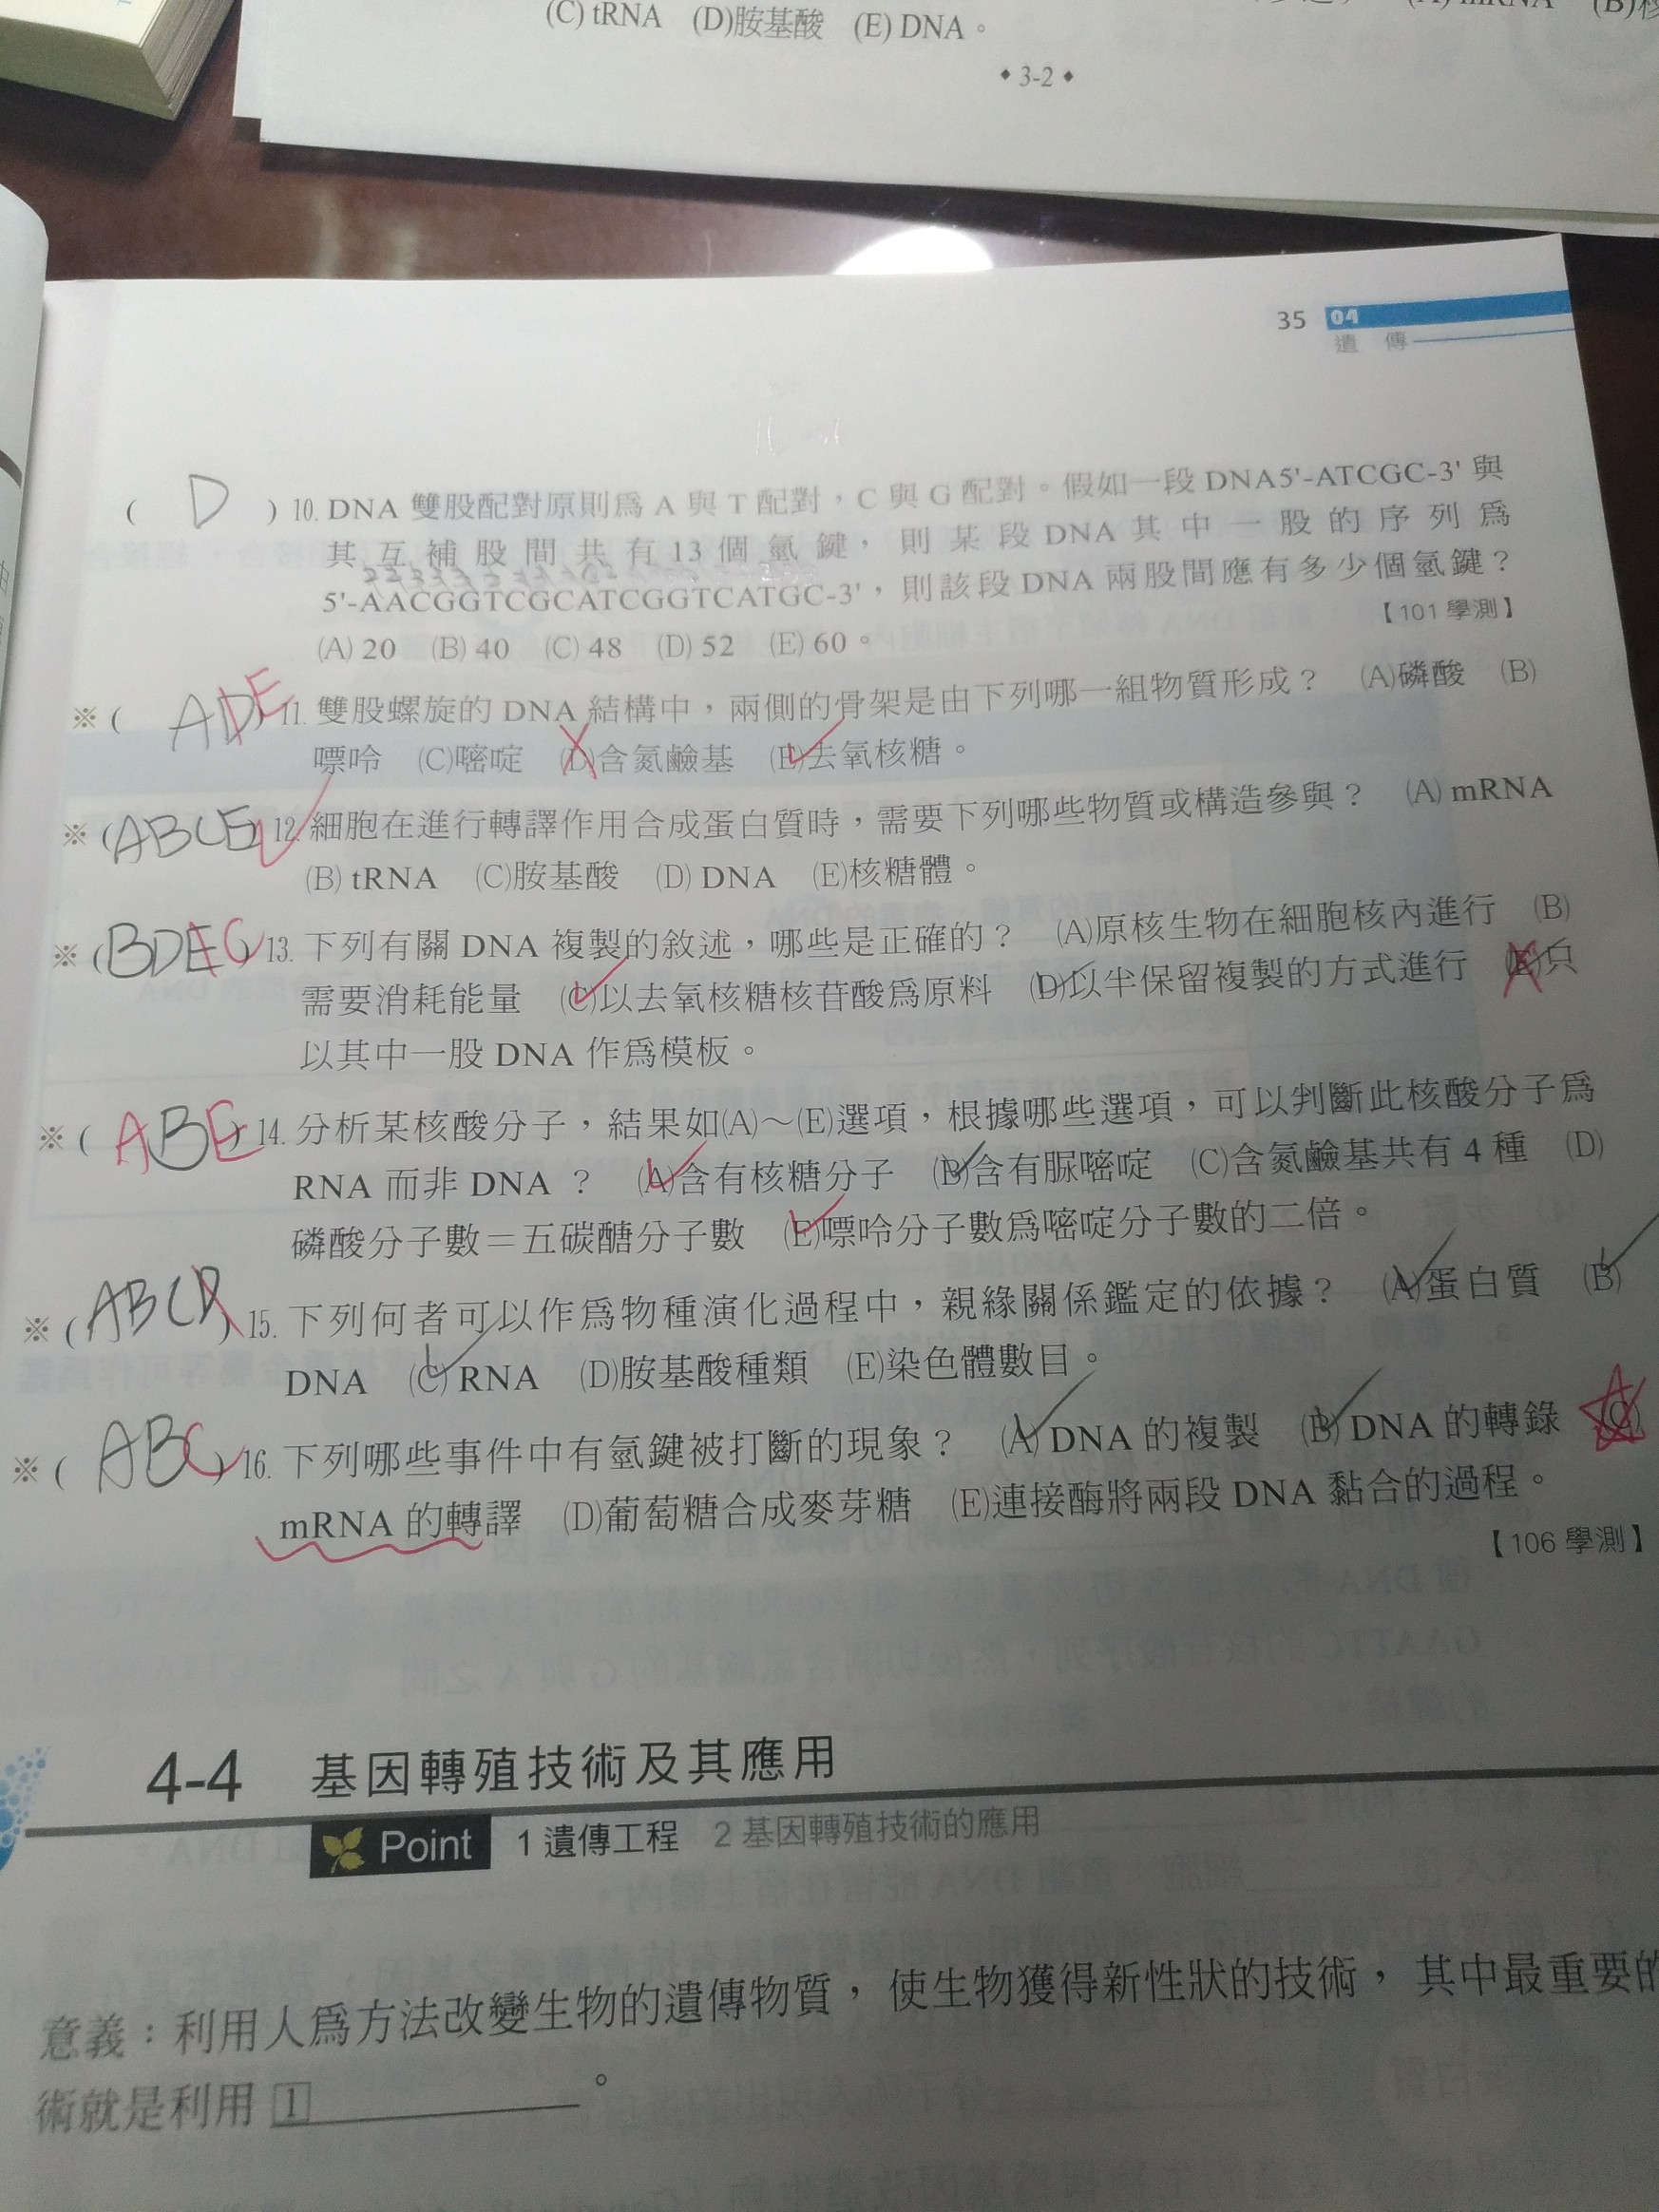 (C) tRNA (D)胺基酸 (E) DNA。
◆ 3-2 ◆
35 04
遺 傳
( D ) 10. DNA 雙股配對原則為 A 與 T 配對，C 與 G 配對。假如一段 DNA5'-ATCGC-3' 與
其互補股間共有 13 個氫鍵，則某段 DNA 其中一股的序列為
5'-AACGGTCGCATCGGTCATGC-3'，則該段 DNA 兩股間應有多少個氫鍵？
(A) 20 (B) 40 (C) 48 (D) 52 (E) 60。 【101 學測】
※ ( ADE ) 11. 雙股螺旋的 DNA 結構中，兩側的骨架是由下列哪一組物質形成？ (A)磷酸 (B)
嘌呤 (C)嘧啶 (D)含氮鹼基 (E)去氧核糖。
※ ( ABCE ) 12. 細胞在進行轉譯作用合成蛋白質時，需要下列哪些物質或構造參與？ (A) mRNA
(B) tRNA (C)胺基酸 (D) DNA (E)核糖體。
※ ( BDEC ) 13. 下列有關 DNA 複製的敘述，哪些是正確的？ (A)原核生物在細胞核內進行 (B)
需要消耗能量 (C)以去氧核糖核苷酸為原料 (D)以半保留複製的方式進行 (E)只
以其中一股 DNA 作為模板。
※ ( ABE ) 14. 分析某核酸分子，結果如(A)～(E)選項，根據哪些選項，可以判斷此核酸分子為
RNA 而非 DNA ？ (A)含有核糖分子 (B)含有脲嘧啶 (C)含氮鹼基共有 4 種 (D)
磷酸分子數＝五碳醣分子數 (E)嘌呤分子數為嘧啶分子數的二倍。
※ ( ABCD ) 15. 下列何者可以作為物種演化過程中，親緣關係鑑定的依據？ (A)蛋白質 (B)
DNA (C) RNA (D)胺基酸種類 (E)染色體數目。
※ ( ABC ) 16. 下列哪些事件中有氫鍵被打斷的現象？ (A) DNA 的複製 (B) DNA 的轉錄 (C)
mRNA 的轉譯 (D)葡萄糖合成麥芽糖 (E)連接酶將兩段 DNA 黏合的過程。
【106 學測】
4-4 基因轉殖技術及其應用
Point 1 遺傳工程 2 基因轉殖技術的應用
意義：利用人為方法改變生物的遺傳物質，使生物獲得新性狀的技術，其中最重要的
術就是利用 1 。